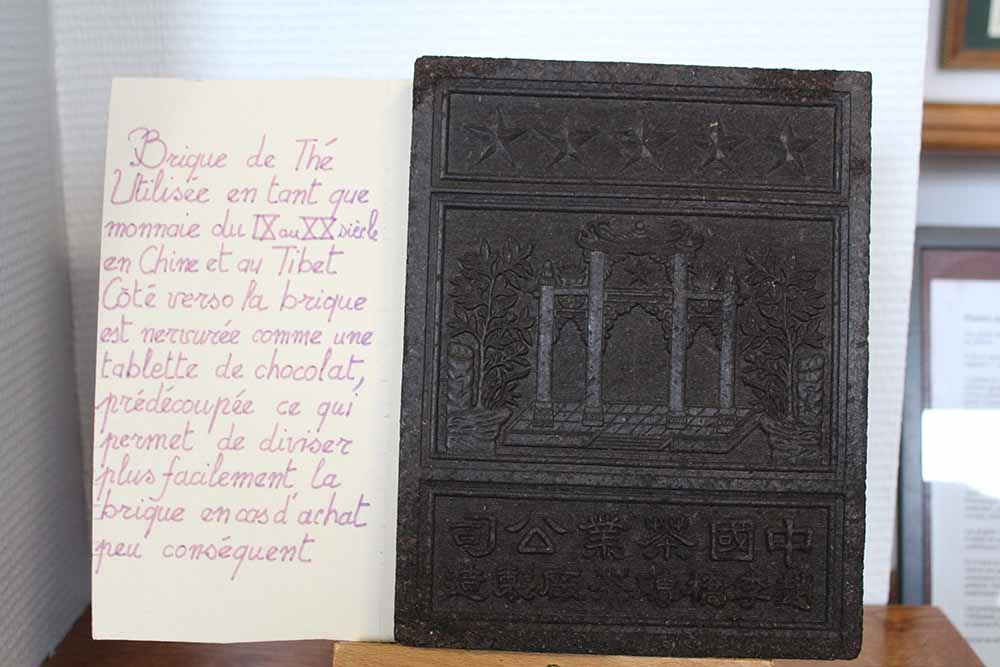 Brique de Thé
Utilisée en tant que
monnaie du IX au XX siècle
en Chine et au Tibet
Côté verso la brique
est nervurée comme une
tablette de chocolat,
prédécoupée ce qui
permet de diviser
plus facilement la
brique en cas d'achat
peu conséquent
中國茶業公司
趙李橋茶廠造